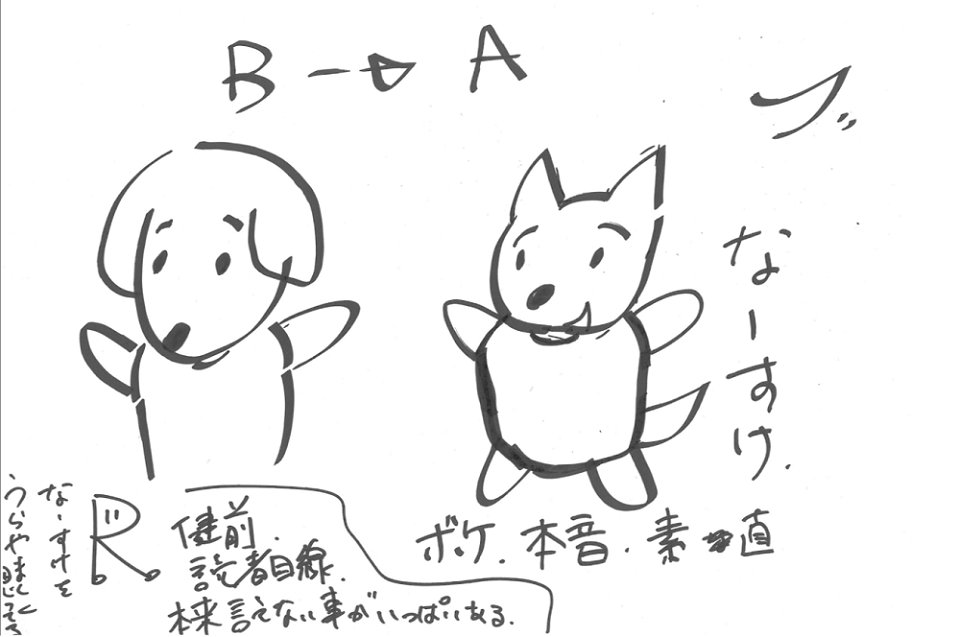 B → A
ブ
なーすけ.
ボケ.本音.素直
健前.
読者目線.
本来言えない事がいっぱいある.
なーすけを
うらやましく思ってる